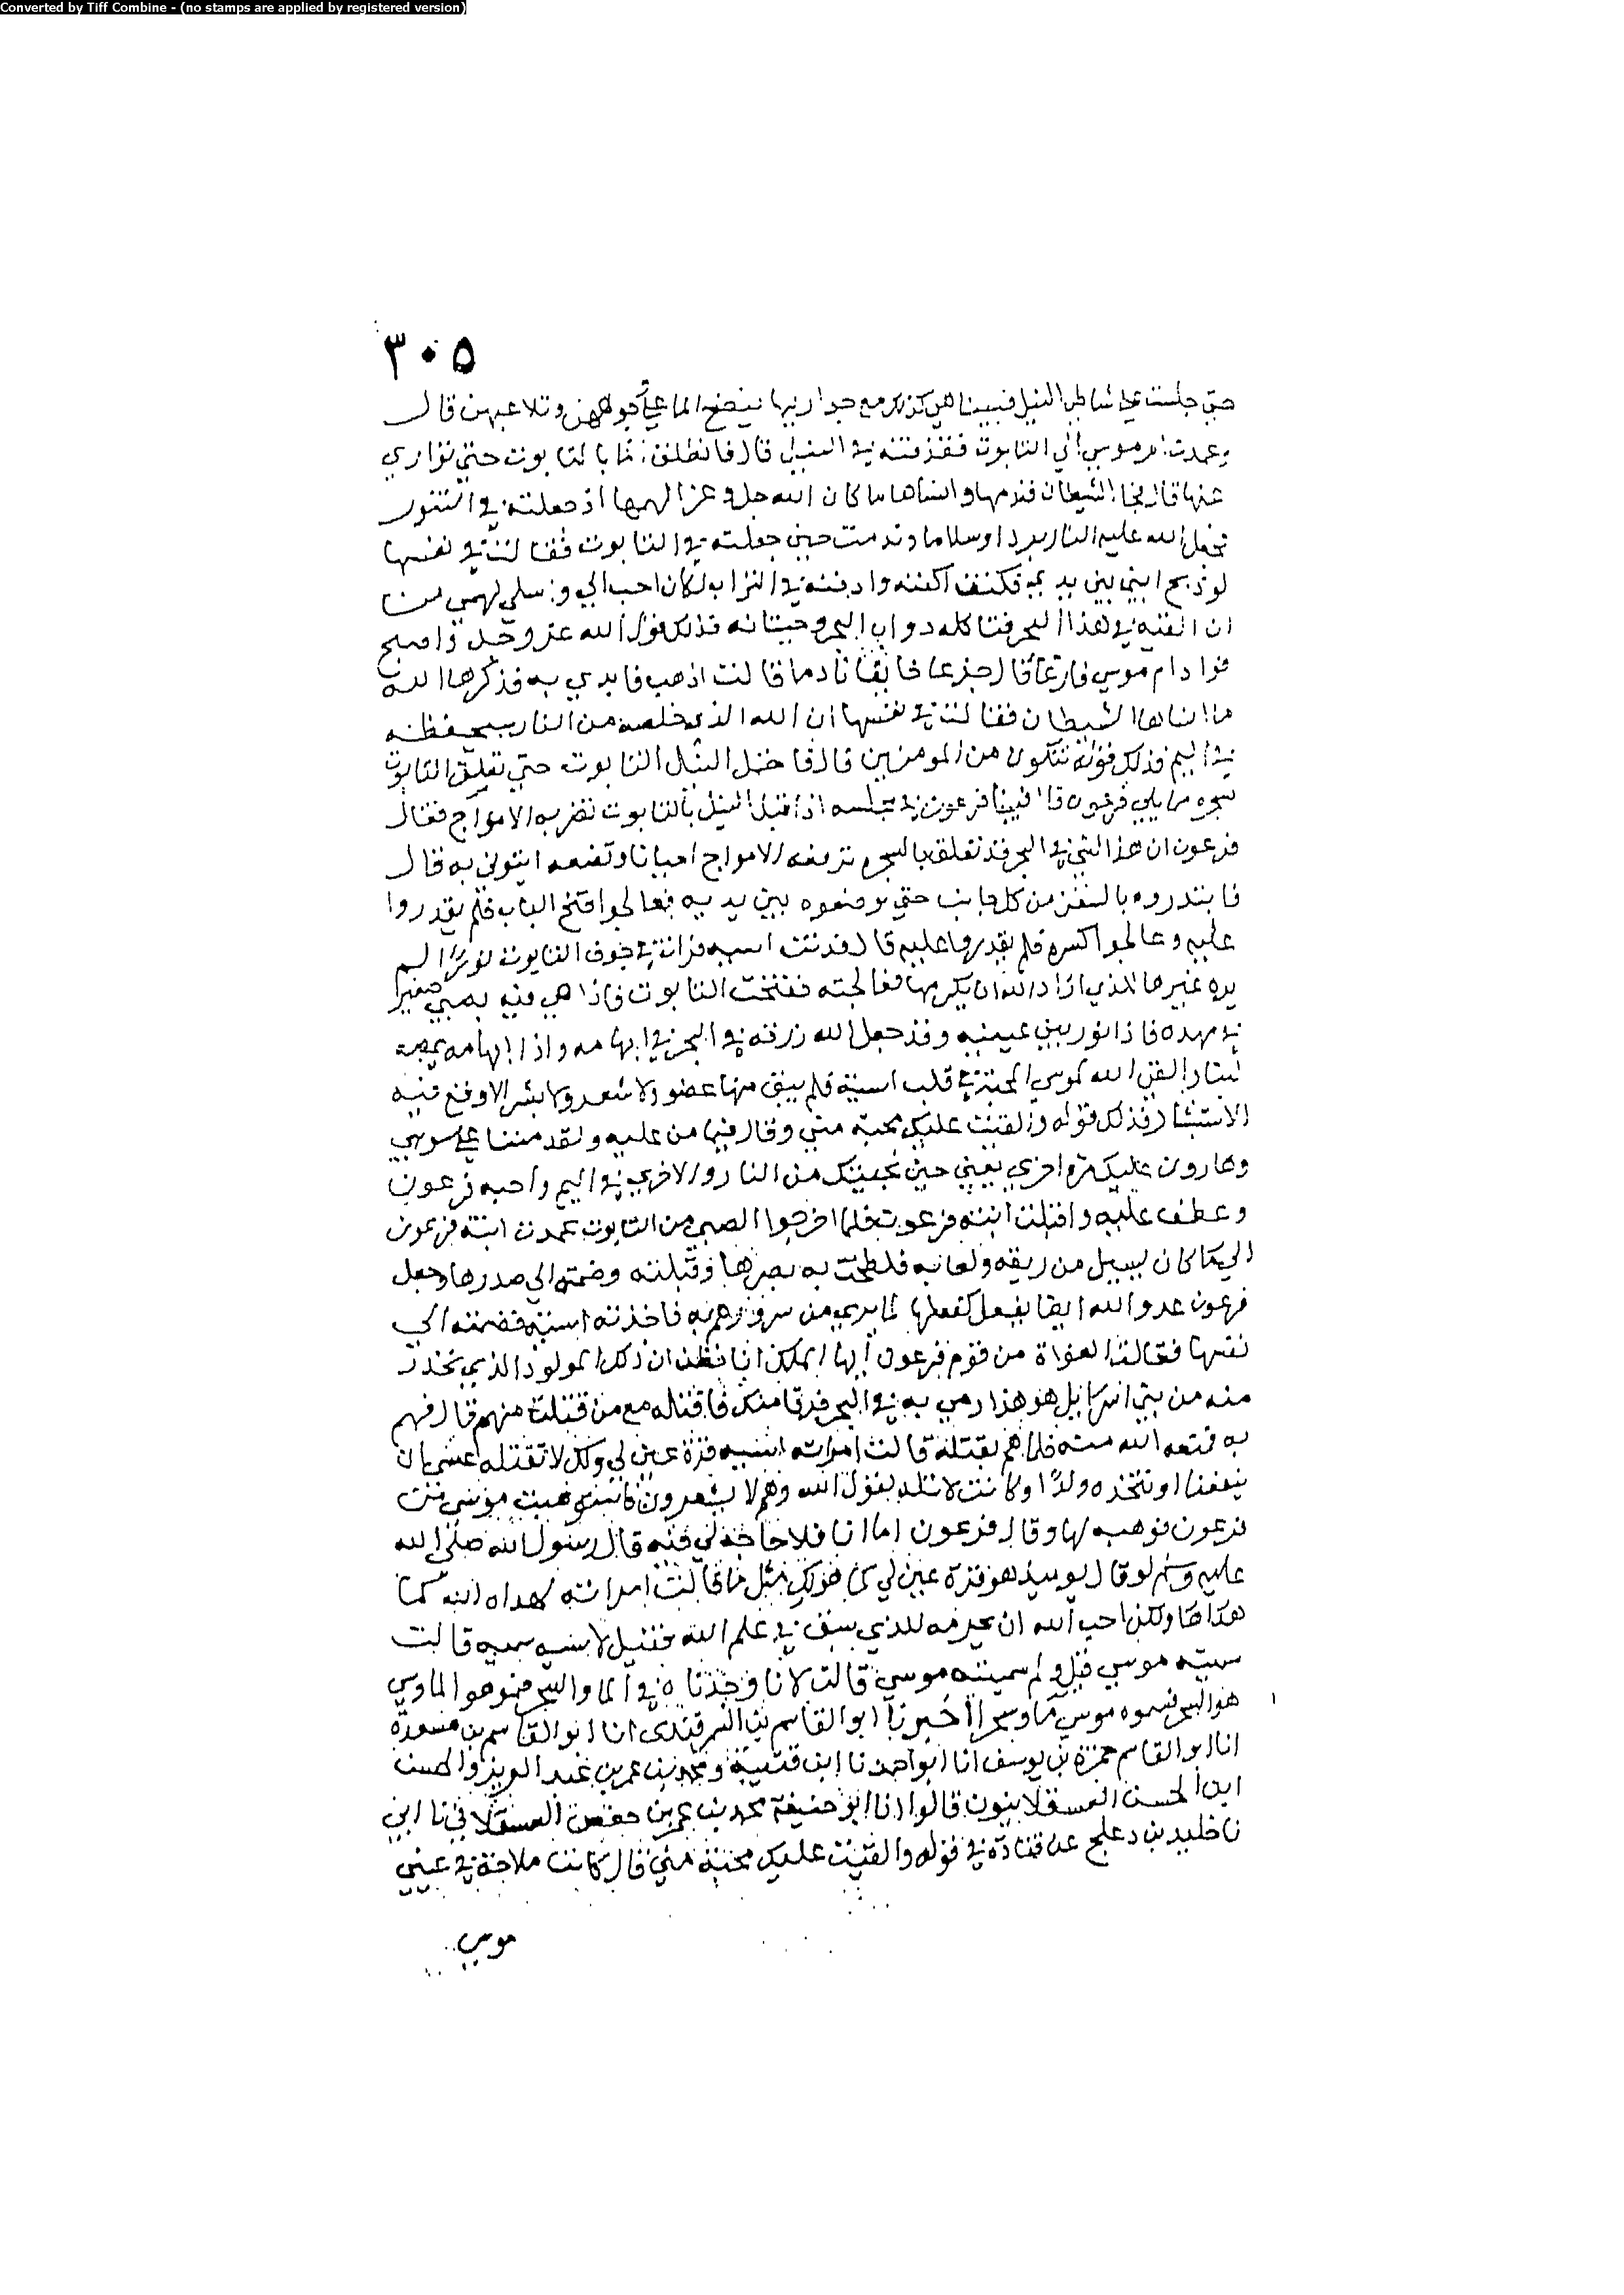 Converted by Tiff Combine - (no stamps are applied by registered version)
٣٠٥
حتى جلست على شاطى النيل فبينا هي كذلك مع جواريها ينضح الما على وجوههن وتلاعبهن قال
وعمدت ام موسى الى التابوت فقذفته في النيل قال فانطلق الما بالتابوت حتى توارى
عنها قال فجا الشيطان فندمها وانساها ما كان الله جل وعز الهمها اذ جعلته في التنور
فجعل الله عليه النار بردا وسلاما وندمت حين جعلته في التابوت فقالت في نفسها
لو ذبح ابني بين يدي فكنت اكفنه وادفنه في التراب لكان احب الي واسلى لهمي من
ان القيه في هذا البحر فتاكله دواب البحر وحيتانه فذلك قول الله عز وجل واصبح
فواد ام موسى فارغا قال جزعا خايفا نادما قالت اذهب فابدي به فذكرها الله
ما انساها الشيطان فقالت في نفسها ان الله الذي خلصه من النار سيحفظه
في اليم فذلك قوله لتكون من المومنين قال فاحتمل النيل التابوت حتى تعلق التابوت
بشجره مما يلي فرعون قال فبينا فرعون في مجلسه اذ اقبل النيل بالتابوت تضربه الامواج فقال
فرعون ان هذا الشي في البحر قد تعلق بالشجره ترفعه الامواج احيانا وتضعه ايتوني به قال
فابتدروه بالسفن من كل جانب حتى وضعوه بين يديه فعالجوا فتح الباب فلم يقدروا
عليه وعالجوا كسره فلم يقدروا عليه قال فدنت اسيه فرات في جوف التابوت نورا لم
يره غيرها للذي اراد الله ان يكرمها فعالجته ففتحت التابوت فاذا هي فيه بصبي صغير
في مهده فاذا نور بين عينيه وقد جعل الله رزقه في البحر في ابهامه واذا ابهامه يمصه
لبنا والقى الله لموسى المحبة في قلب اسية فلم يبق منها عضو ولا شعر ولا بشر الا وقع فيه
الاستبشار فذلك قوله والقيت عليك محبة مني وقال فيما من عليه ولقد مننا على موسى
وهارون عليك مرة اخرى يعني حين نجيتك من النار والاخرى في اليم واحبه فرعون
وعطف عليه واقبلت ابنة فرعون فلما اخرجوا الصبي من التابوت عمدت ابنة فرعون
الى ما كان يسيل من ريقه ولعابه فلطخت به برصها وقبلته وضمته الى صدرها وجعل
فرعون عدو الله ايضا يفعل كفعلها لما يرى من سرورهم به فاخذته اسية فضمته الى
نفسها فقالت الغواة من قوم فرعون ايها الملك انا نظن ان ذلك المولود الذي تحذر
منه من بني اسرائيل هو هذا رمي به في البحر فرقا منك فاقتله مع من قتلت منهم قال فهم
به فمنعه الله منه فلما هم بقتله قالت امراته اسيه قرة عين لي ولك لا تقتله عسى ان
ينفعنا او نتخذه ولدا وكانت لا تلد يقول الله وهم لا يشعرون فاستوهبت موسى من
فرعون فوهبه لها وقال فرعون اما انا فلا حاجة لي فيه قال رسول الله صلى الله
عليه وسلم لو قال يوميذ هو قرة عين لي كما هو لك مثل ما قالت امراته لهداه الله كما
هداها ولكن احب الله ان يحرمه للذي سبق في علم الله فقيل لاسيه سميه قالت
سميته موسى قيل ولم سميته موسى قالت لانا وجدناه في الما والشجر فمو هو الما وسى
هو الشجر فسموه موسى ما وشجر اخبرنا ابو القاسم بن السمرقندي انا ابو القاسم بن مسعدة
انا ابو القاسم حمزة بن يوسف انا ابو احمد نا ابن قتيبة ومحمد بن عمر بن عبد العزيز والحسن
ابن الحسن العسقلانيون قالوا انا ابو حنيفة محمد بن عمر بن حفص العسقلاني نا ابي
نا خليد بن دعلج عن قتادة في قوله والقيت عليك محبة مني قال كانت ملاحة في عيني
موسى